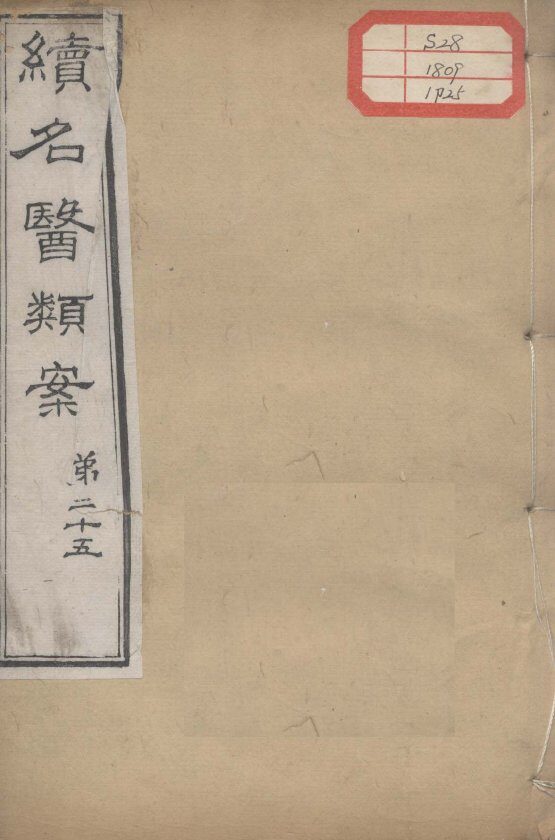 續名醫類案
第二十五
S28
1809
1p25